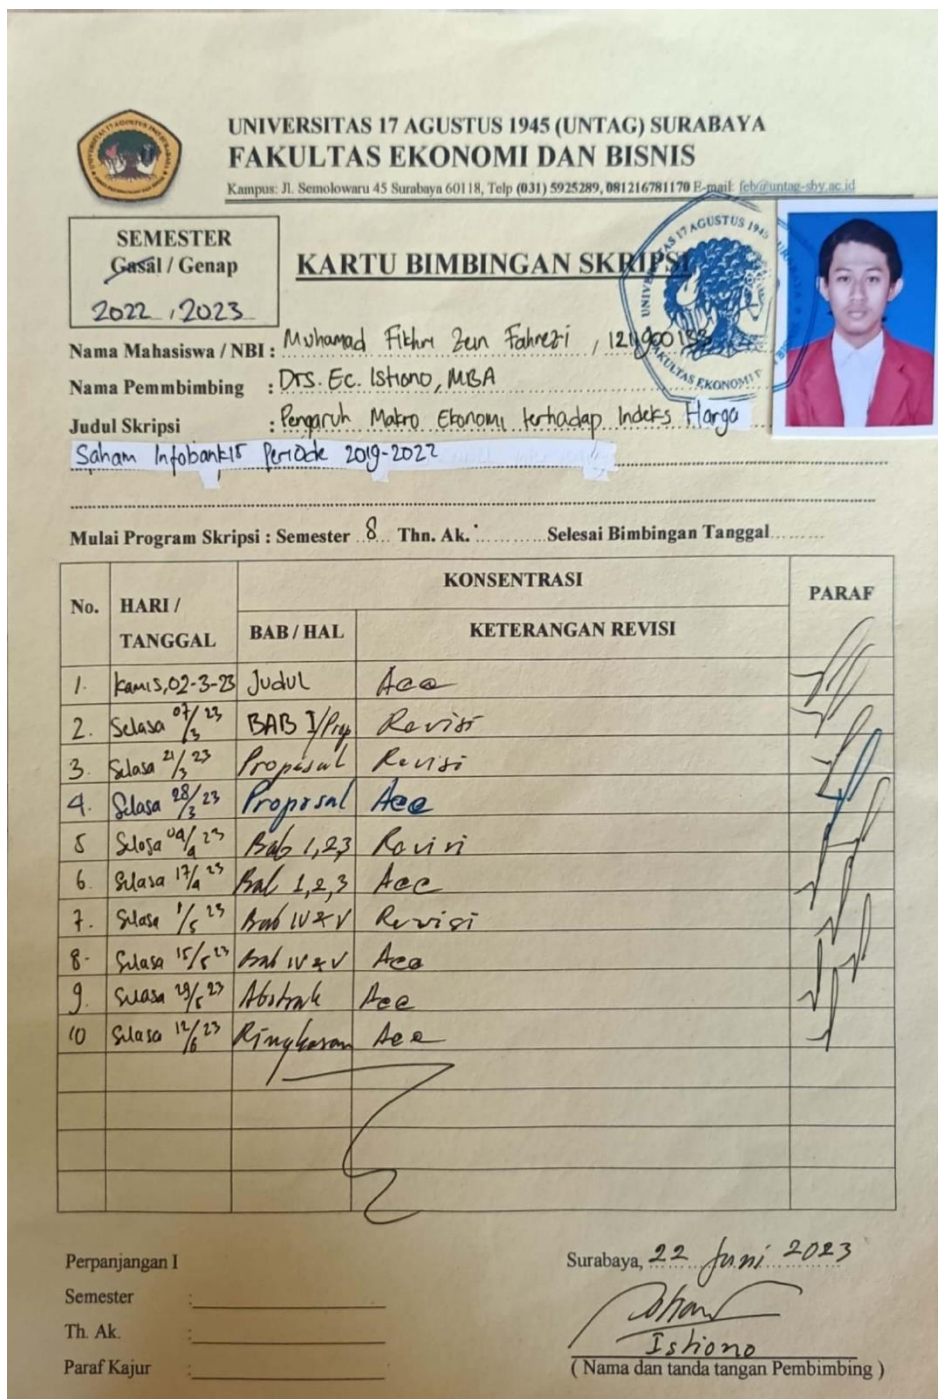 UNIVERSITAS 17 AGUSTUS 1945 (UNTAG) SURABAYA
FAKULTAS EKONOMI DAN BISNIS
Kampus: Jl. Semolowaru 45 Surabaya 60118, Telp (031) 5925289, 081216781170 E-mail: feb@untag-sby.ac.id
SEMESTER
Gasal / Genap
2022 / 2023
KARTU BIMBINGAN SKRIPSI
Nama Mahasiswa / NBI : Muhamad Fikhri Zein Fahrezi , 1211900133
Nama Pemmbimbing : Drs. Ec. Istiono, MBA
Judul Skripsi : Pengaruh Makro Ekonomi terhadap Indeks Harga
Saham Infobank15 Periode 2019-2022
Mulai Program Skripsi : Semester 8 Thn. Ak. Selesai Bimbingan Tanggal
No. HARI / TANGGAL KONSENTRASI PARAF
BAB / HAL KETERANGAN REVISI
1. Kamis, 02-3-23 Judul Acc
2. Selasa 07/3 23 BAB I/Prop Revisi
3. Selasa 21/3 23 Proposal Revisi
4. Selasa 28/3 23 Proposal Acc
5 Selasa 04/4 23 Bab 1,2,3 Revisi
6. Selasa 17/4 23 Bab 1,2,3 Acc
7. Selasa 1/5 23 Bab IV & V Revisi
8. Selasa 15/5 23 Bab IV & V Acc
9. Selasa 29/5 23 Abstrak Acc
10 Selasa 12/6 23 Ringkasan Acc
Perpanjangan I
Semester :
Th. Ak. :
Paraf Kajur :
Surabaya, 22 Juni 2023
Istiono
( Nama dan tanda tangan Pembimbing )